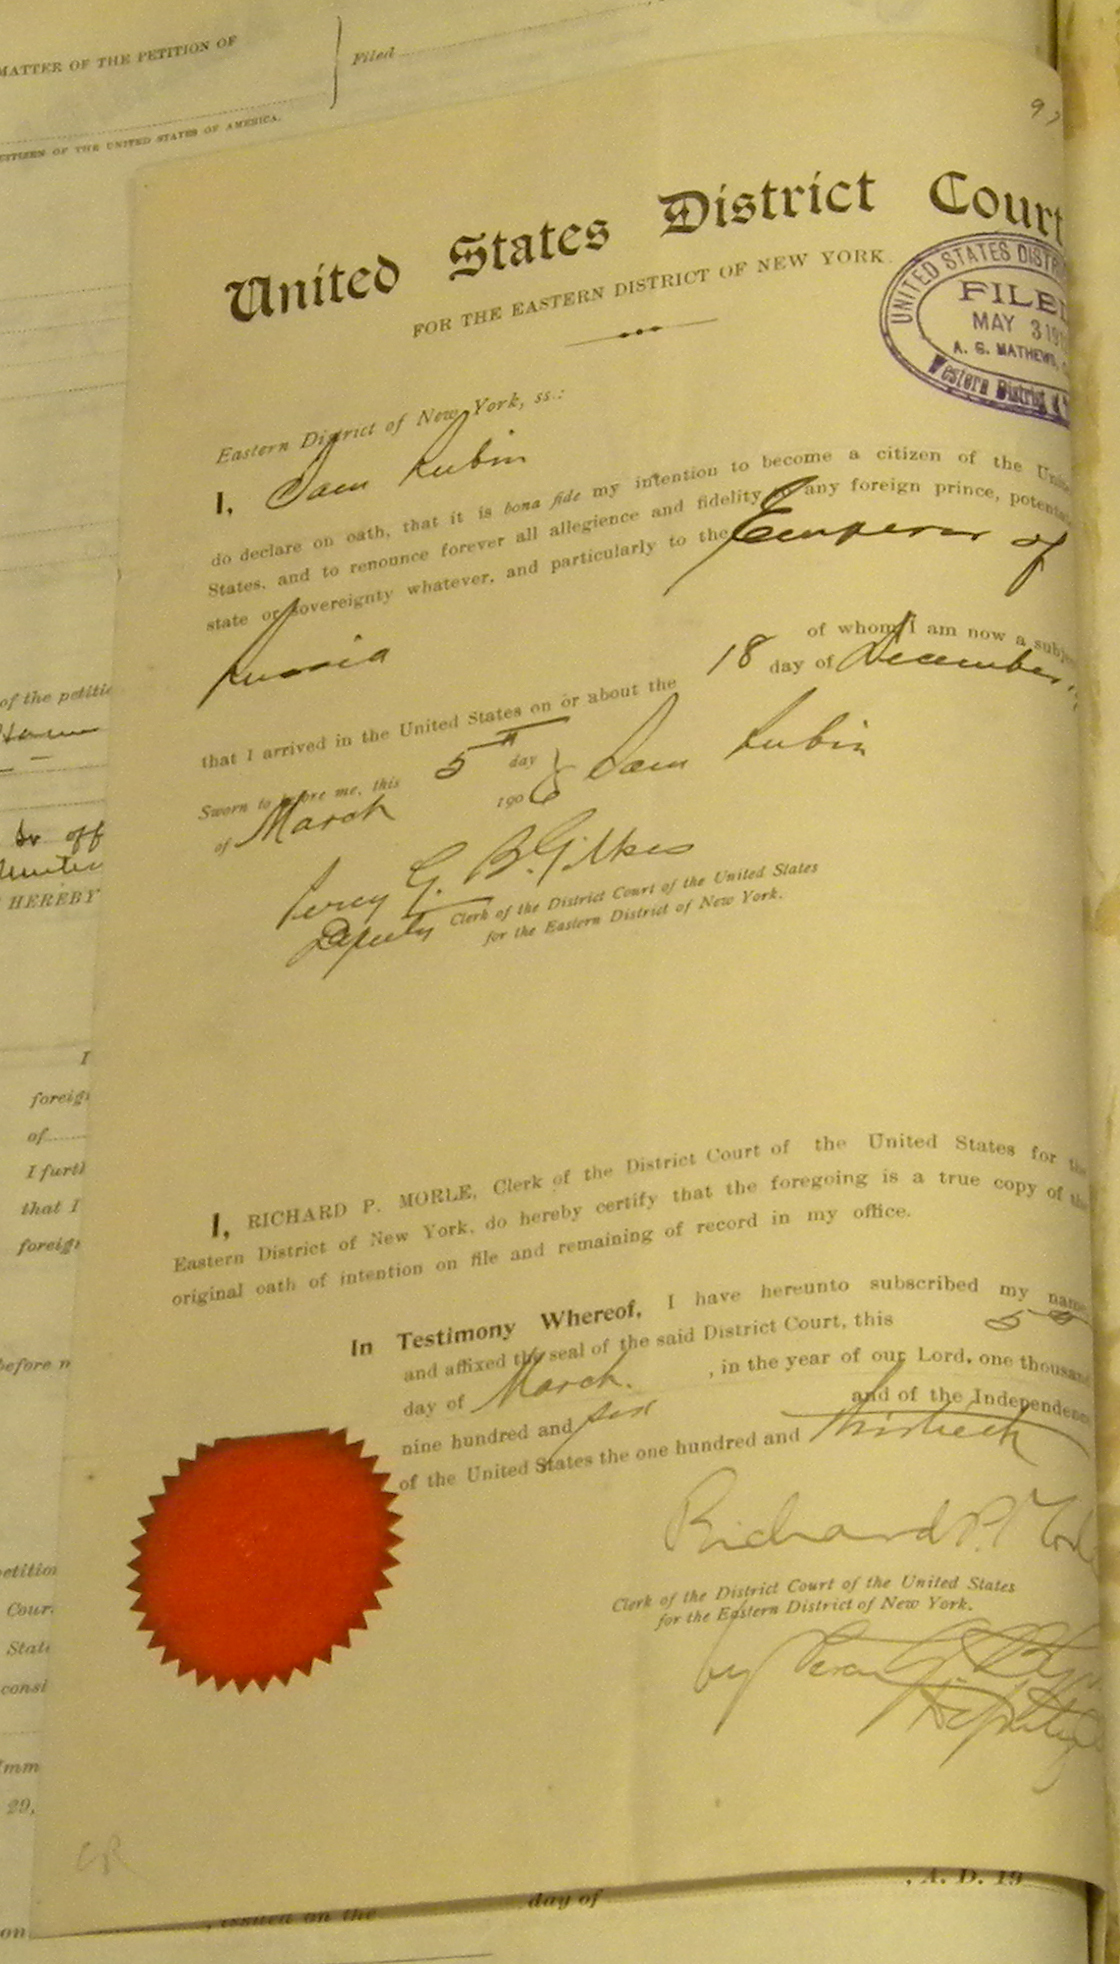 MATTER OF THE PETITION OF
Filed
CITIZEN OF THE UNITED STATES OF AMERICA.
United States District Court
FOR THE EASTERN DISTRICT OF NEW YORK.
UNITED STATES DISTR
FILED
MAY 3 19
A. G. MATHEWS,
Western District of
Eastern District of New York, ss.:
I, Sam Rubin
do declare on oath, that it is bona fide my intention to become a citizen of the United
States, and to renounce forever all allegience and fidelity to any foreign prince, potenta
state or sovereignty whatever, and particularly to the Emperor of
Russia
of whom I am now a subje
that I arrived in the United States on or about the 18 day of December
Sworn to before me, this 5th day
of March 1906
Sam Rubin
Percy G. B. Gilkes
Deputy Clerk of the District Court of the United States
for the Eastern District of New York.
I, RICHARD P. MORLE, Clerk of the District Court of the United States for the
Eastern District of New York, do hereby certify that the foregoing is a true copy of the
original oath of intention on file and remaining of record in my office.
In Testimony Whereof, I have hereunto subscribed my name
and affixed the seal of the said District Court, this 5th
day of March. , in the year of our Lord, one thousand
nine hundred and six and of the Independence
of the United States the one hundred and thirtieth
Richard P. Morle
Clerk of the District Court of the United States
for the Eastern District of New York.
by Percy G. B. Gilkes
Deputy
of the petitio
HEREBY
I
foreign
of
I furth
that I
foreign
before m
etition
Cour
State
consi
Imm
29,
on
, issued on the day of , A. D. 19